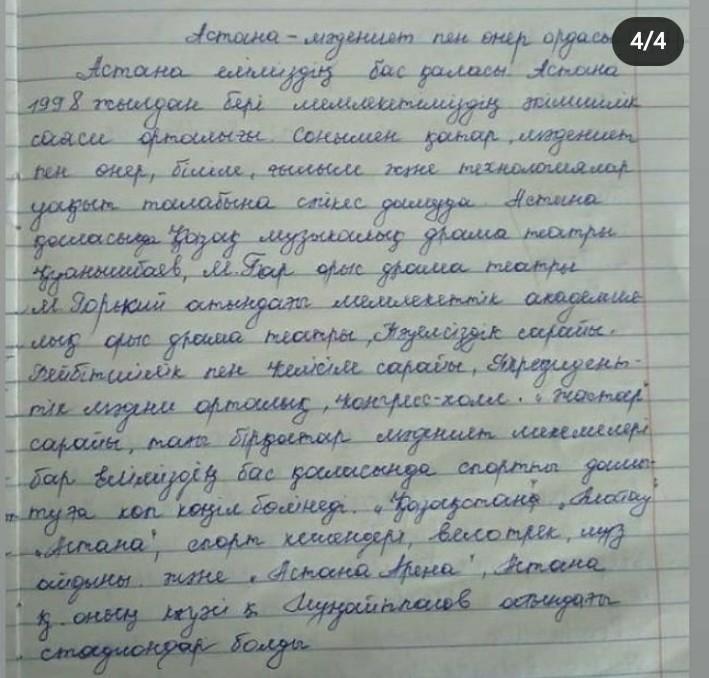 Астана – мәдениет пен өнер ордасы
4/4
Астана еліміздің бас қаласы Астана
1998 жылдан бері мемлекетіміздің әкімшілік
саяси орталығы. Сонымен қатар, мәдениет
пен өнер, білім, ғылым және технологиялар
уақыт талабына сәйкес дамуда. Астана
қаласында Қазақ музыкалық драма театры
Қуанышбаев, М. орыс драма театры
М.Горький атындағы мемлекеттік академия
лық орыс драма театры, Тәуелсіздік сарайы.
Бейбітшілік пен келісім сарайы,
тік мәдени орталық, конгресс-холл. "Жастар"
сарайы, тағы бірқатар мәдениет мекемелері
бар еліміздің бас қаласында спортты дамы-
туға көп көңіл бөлінеді. "Қазақстан", "Алатау"
"Астана", спорт кешендері, велотрек, мұз
айдыны және "Астана Арена", Астана
қ. оның қ Мұңайтпасов атындағы
стадиондар болды